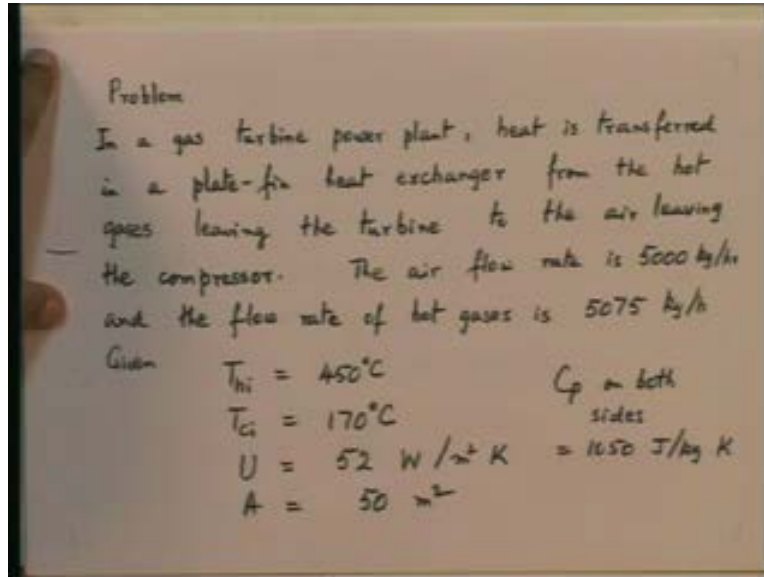 Problem
In a gas turbine power plant, heat is transferred
in a plate-fin heat exchanger from the hot
gases leaving the turbine to the air leaving
the compressor. The air flow rate is 5000 kg/hr
and the flow rate of hot gases is 5075 kg/h
Given
Thi = 450°C
Cp on both
Tci = 170°C
sides
U = 52 W/m² K
= 1050 J/kg K
A = 50 m²